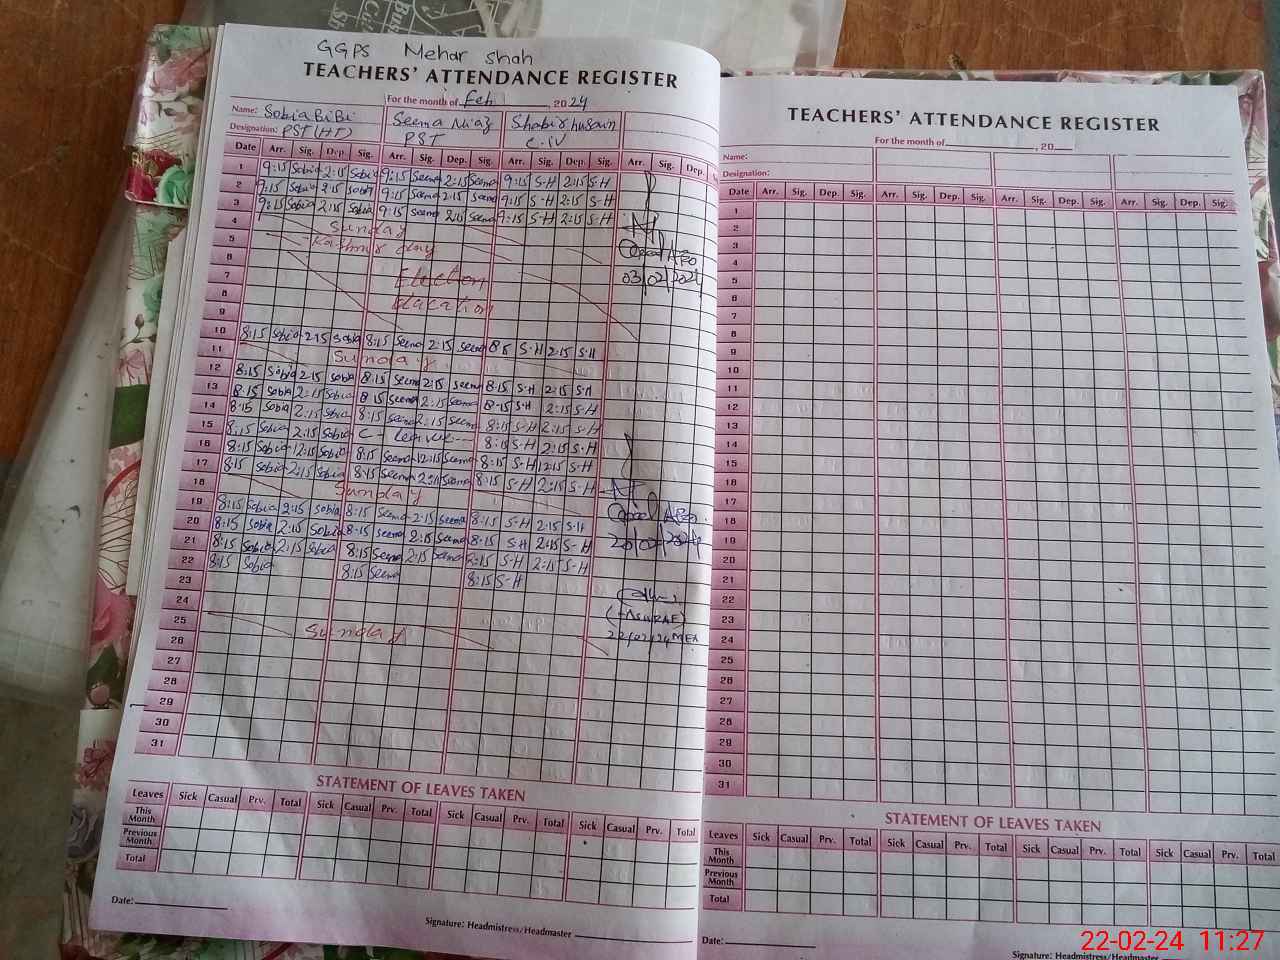 GGPS Mehar Shah
TEACHERS' ATTENDANCE REGISTER
For the month of Feb, 2024
Name: Sobia BiBi Seema Niaz Shabir husain
Designation: PST (HT) PST C-IV
Date Arr. Sig. Dep. Sig. Arr. Sig. Dep. Sig. Arr. Sig. Dep. Sig. Arr. Sig. Dep.
1 9:15 Sobia 2:15 Sobia 9:15 Seema 2:15 Seema 9:15 S-H 2:15 S-H
2 9:15 Sobia 2:15 Sobia 9:15 Seema 2:15 Seema 9:15 S-H 2:15 S-H
3 9:15 Sobia 2:15 Sobia 9:15 Seema 2:15 Seema 9:15 S-H 2:15 S-H
4 Sunday
5 Kashmir day
6
7 Election
8
9
03/02/2024
10 8:15 Sobia 2:15 Sobia 8:15 Seema 2:15 Seema S-H 2:15 S-H
11 Sunday
12 8:15 Sobia 2:15 Sobia 8:15 Seema 2:15 Seema 8:15 S-H 2:15 S-H
13 8:15 Sobia 2:15 Sobia 8:15 Seema 2:15 Seema 8:15 S-H 2:15 S-H
14 8:15 Sobia 2:15 Sobia 8:15 Seema 2:15 Seema 8:15 S-H 2:15 S-H
15 8:15 Sobia 2:15 Sobia 8:15 S-H 2:15 S-H
16 8:15 Sobia 12:15 Sobia 8:15 Seema 12:15 Seema 8:15 S-H 12:15 S-H
17 8:15 Sobia 2:15 Sobia 8:15 Seema 2:15 Seema 8:15 S-H 2:15 S-H
18 Sunday
19 8:15 Sobia 2:15 Sobia 8:15 Seema 2:15 Seema 8:15 S-H 2:15 S-H
20 8:15 Sobia 2:15 Sobia 8:15 Seema 2:15 Seema 8:15 S-H 2:15 S-H
21 8:15 Sobia 2:15 Sobia 8:15 Seema 2:15 Seema S-H 2:15 S-H
22 8:15 Sobia 8:15 Seema 8:15 S-H
23
24
25 Sunday
22/02/24 MEA
26
27
28
29
30
31
STATEMENT OF LEAVES TAKEN
Leaves Sick Casual Prv. Total Sick Casual Prv. Total Sick Casual Prv. Total Sick Casual Prv. Total
This Month
Previous Month
Total
Date:
Signature: Headmistress/Headmaster
TEACHERS' ATTENDANCE REGISTER
For the month of , 20
Name:
Designation:
Date Arr. Sig. Dep. Sig. Arr. Sig. Dep. Sig. Arr. Sig. Dep. Sig. Arr. Sig. Dep. Sig.
1
2
3
4
5
6
7
8
9
10
11
12
13
14
15
16
17
18
19
20
21
22
23
24
25
26
27
28
29
30
31
STATEMENT OF LEAVES TAKEN
Leaves Sick Casual Prv. Total Sick Casual Prv. Total Sick Casual Prv. Total Sick Casual Prv. Total
This Month
Previous Month
Total
Date:
Signature: Headmistress/Headmaster
22-02-24 11:27